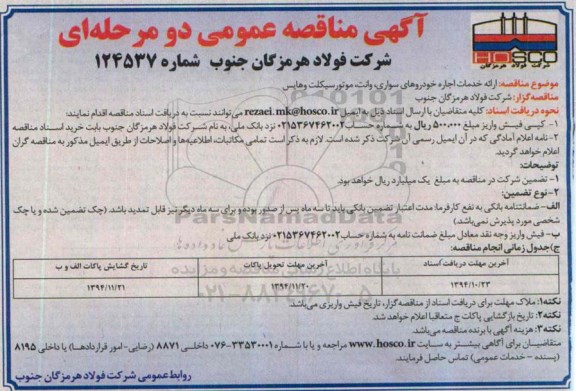 آگهی مناقصه عمومی دو مرحله‌ای
شرکت فولاد هرمزگان جنوب شماره ۱۲۴۵۳۷
HOSCO
شرکت فولاد هرمزگان
موضوع مناقصه: ارائه خدمات اجاره خودروهای سواری، وانت، موتورسیکلت وهایس
مناقصه گزار: شرکت فولاد هرمزگان جنوب
نحوه دریافت اسناد: کلیه متقاضیان با ارسال اسناد ذیل به ایمیل rezaei.mk@hosco.ir می‌توانند نسبت به دریافت اسناد مناقصه اقدام نمایند:
۱- کپی فیش واریز مبلغ ۵۰۰,۰۰۰ ریال به شماره حساب ۰۲۱۵۳۶۷۴۶۲۰۰۲ نزد بانک ملی، به نام شرکت فولاد هرمزگان جنوب بابت خرید اسناد مناقصه
۲- نامه اعلام آمادگی که در آن ایمیل رسمی آن شرکت ذکر شده است. لازم به ذکر است تمامی مکاتبات، اطلاعیه‌ها و اصلاحات از طریق ایمیل مذکور به مناقصه گران
اعلام خواهد گردید.
توضیحات:
۱- تضمین شرکت در مناقصه به مبلغ یک میلیارد ریال خواهد بود.
۲- نوع تضمین:
الف - ضمانتنامه بانکی به نفع کارفرما: مدت اعتبار تضمین بانکی باید تا سه ماه پس از صدور بوده و برای سه ماه دیگر نیز قابل تمدید باشد. (چک تضمین شده و یا چک
شخصی مورد پذیرش نمی‌باشد)
ب- فیش واریز وجه نقد معادل مبلغ ضمانت نامه به شماره حساب ۰۲۱۵۳۶۷۴۶۲۰۰۲ نزد بانک ملی
ج) جدول زمانی انجام مناقصه:
آخرین مهلت دریافت اسناد آخرین مهلت تحویل پاکات تاریخ گشایش پاکات الف و ب
۱۳۹۴/۱۰/۲۳ ۱۳۹۴/۱۱/۲۰ ۱۳۹۴/۱۱/۲۱
نکته۱: ملاک مهلت برای دریافت اسناد از مناقصه‌گزار، تاریخ فیش واریزی می‌باشد.
نکته۲: تاریخ بازگشایی پاکات ج متعاقبا اعلام خواهد شد.
نکته۳: هزینه آگهی با برنده مناقصه می‌باشد.
متقاضیان برای آگاهی بیشتر به سایت www.hosco.ir مراجعه و یا با شماره ۳۳۵۳۰۰۰۱-۰۷۶ داخلی ۸۸۷۱ (رضایی- امور قراردادها) یا داخلی ۸۱۹۵
(پسنده - خدمات عمومی) تماس حاصل فرمایند.
روابط عمومی شرکت فولاد هرمزگان جنوب
ParsNamadData